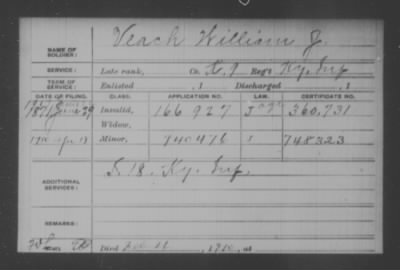 NAME OF SOLDIER: Veach William J.
SERVICE: Late rank, Co. K, 9 Reg't Ky. Inf
TERM OF SERVICE: Enlisted , 1 Discharged , 1
DATE OF FILING. CLASS. APPLICATION NO. LAW. CERTIFICATE NO.
Invalid, 166 927 360,731
Widow,
Minor, 740476 748323
ADDITIONAL SERVICES: K 18. Ky. Inf.
REMARKS:
Died 1910, at